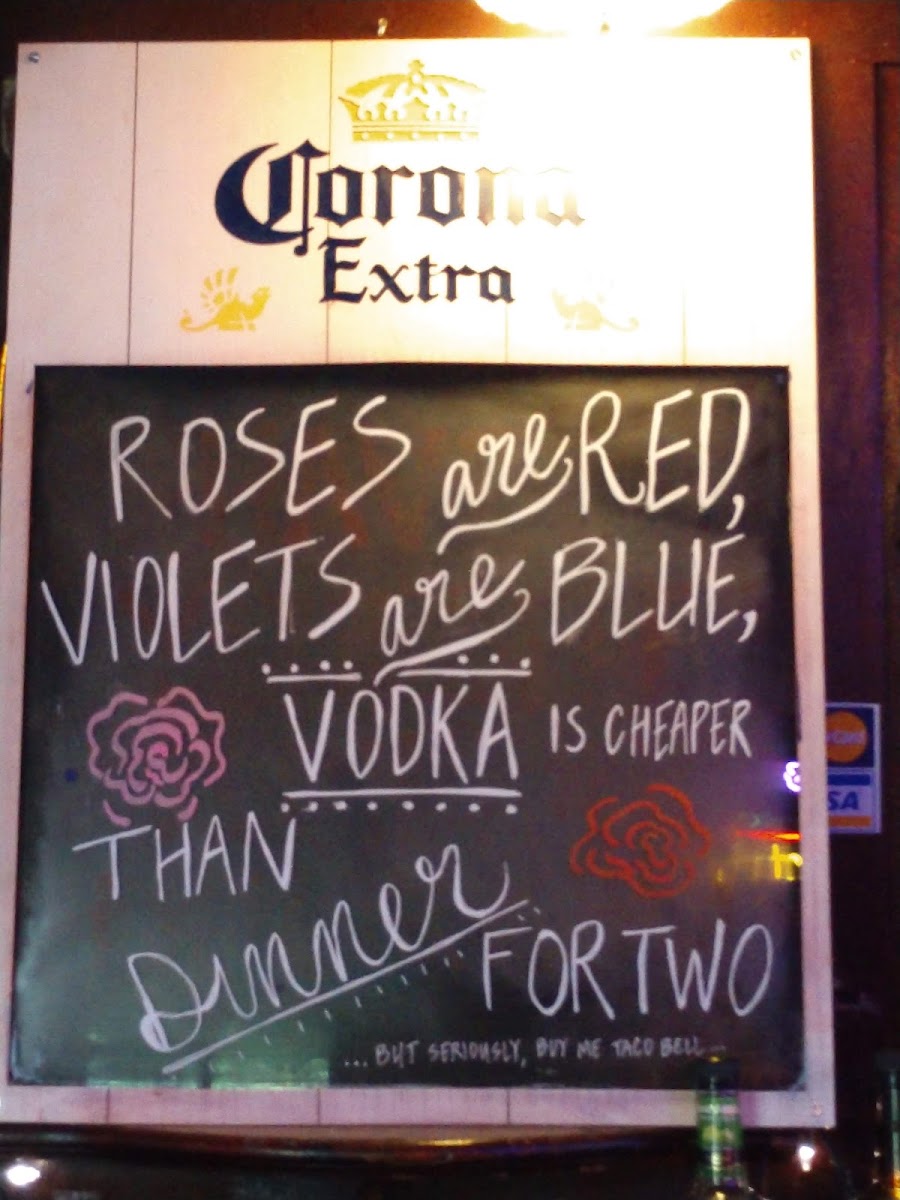 Corona
Extra
ROSES are RED,
VIOLETS are BLUE,
VODKA IS CHEAPER
THAN
Dinner FOR TWO
...BUT SERIOUSLY, BUY ME TACO BELL...